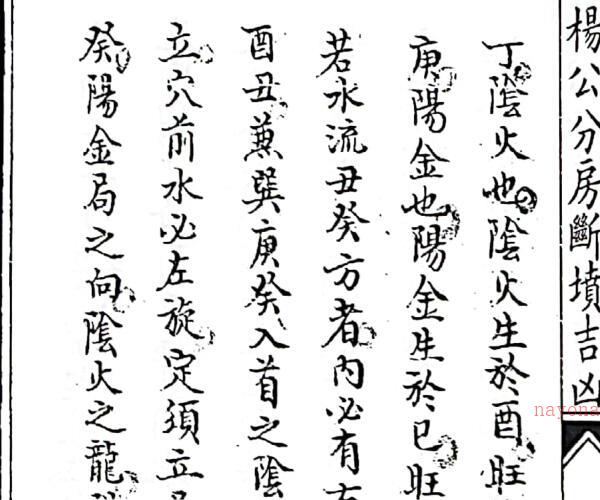 楊公分房斷墳吉凶
丁陰火也陰火生於酉旺
庚陽金也陽金生於巳旺
若水流丑癸方者內必有
酉丑兼巽庚癸入首之陰
立穴前水必左旋定須立
癸陽金局之向陰火之龍
nayona